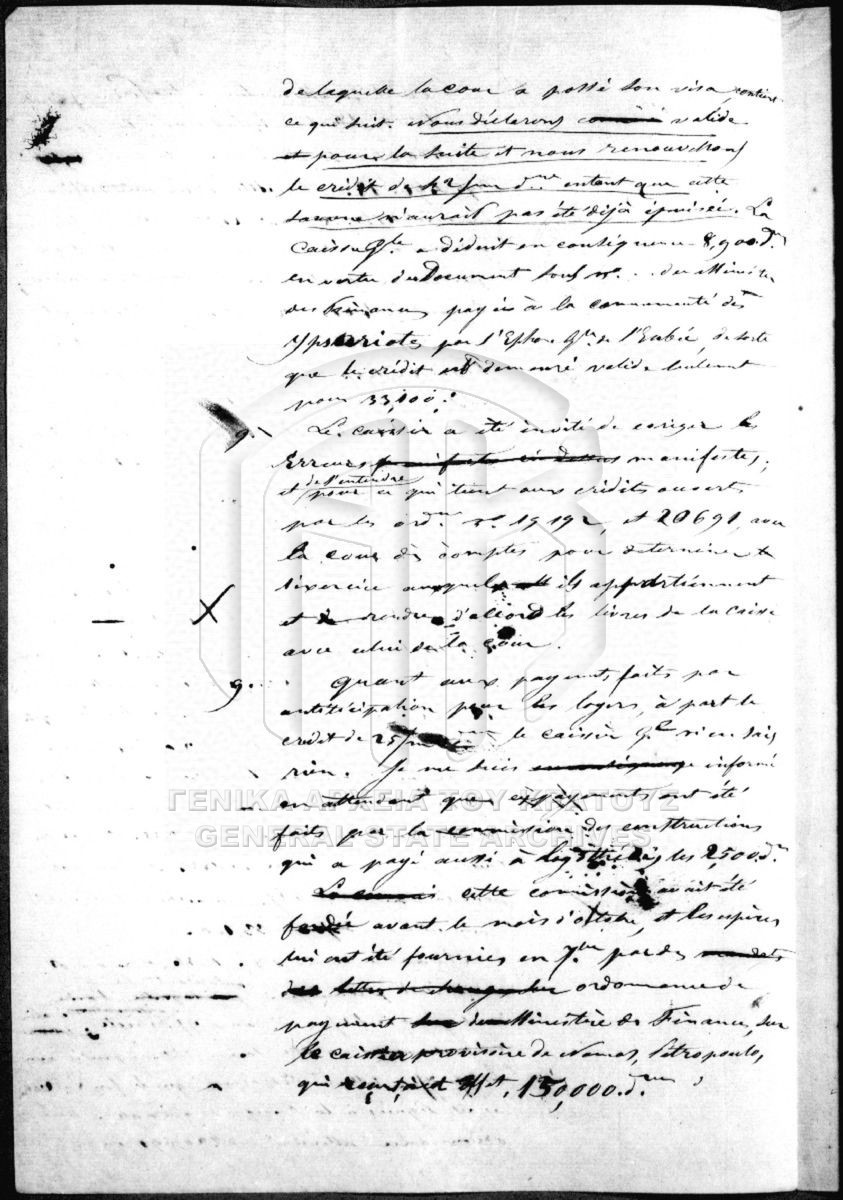 de laquelle la cour a passé son visa, contient
ce qui suit. Nous déclarons valide
et pour la suite et nous renouvellons
le crédit de 42/m d.me entant que cette
somme n'aurait pas été déjà épuisée. La
Caisse G.le a déduit en conséquence 8,900 d.
en vertu du Document sous n.o .. du Ministère
des Finances payés à la communauté des
Ypsariotes par l'Ephore G.l de l'Eubée, de sorte
que le crédit est demeuré valide seulement
pour 33,100.
9. Le caissier a été invité de coriger les
Erreurs manifestes,
de s'entendre
et pour ce qui tient aux crédits ouverts
par les ord. n.o 19192, et 20691, avec
la cour des comptes pour déterminer
l'exercice auquel ils appartiennent
et de rendre d'accord les livres de la Caisse
avec celui de la Cour.
9. Quant aux payements faits par
antiticipation pour les loyers, à part le
crédit de 25/m le caissier G.l n'en sais
rien. Je me suis informé
en attendant que ces payements ont été
faits par la commission des constructions
qui a payé aussi à les 2,500 d.
cette comission avait été
avant le mois d'octobre, et les espèces
lui ont été fournies en 7.bre par des
ordonnances de
payement Ministère des Finances, sur
le caissier provisoire de Nomos, Pétropoulos,
qui 150,000 d.
ΓΕΝΙΚΑ ΑΡΧΕΙΑ ΤΟΥ ΚΡΑΤΟΥΣ
GENERAL STATE ARCHIVES